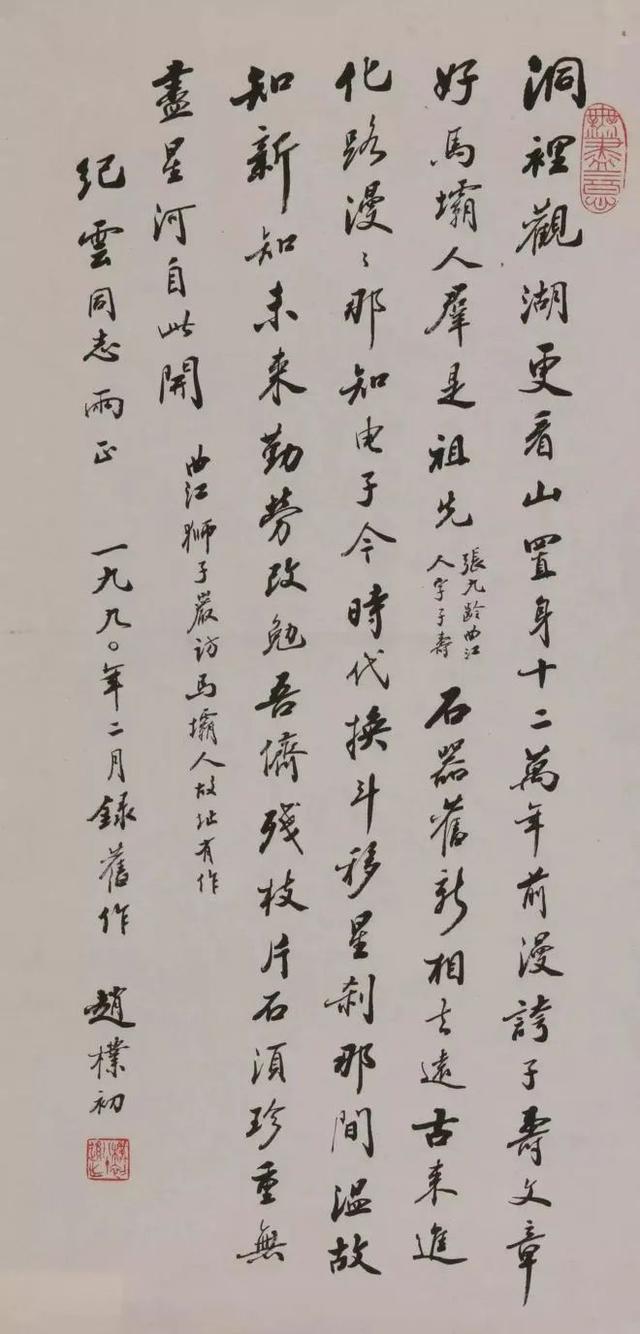 洞裡觀湖更看山置身十二萬年前漫誇子壽文章
好馬壩人羣是祖先
張九齡曲江
人字子壽
石器舊新相去遠古來進
化路漫〻那知电子今時代換斗移星刹那間温故
知新知未來勤勞改勉吾儕殘枝片石須珍重無
盡星河自此開
曲江獅子巖訪馬壩人故址有作
紀雲同志兩正
一九九〇年二月錄舊作
趙樸初
無盡意